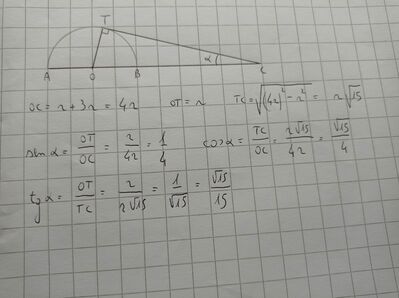 T
A O B α C
OC = r + 3r = 4r OT = r TC = √((4r)² - r²) = r√15
sen α = OT/OC = r/4r = 1/4 cos α = TC/OC = r√15/4r = √15/4
tg α = OT/TC = r/r√15 = 1/√15 = √15/15